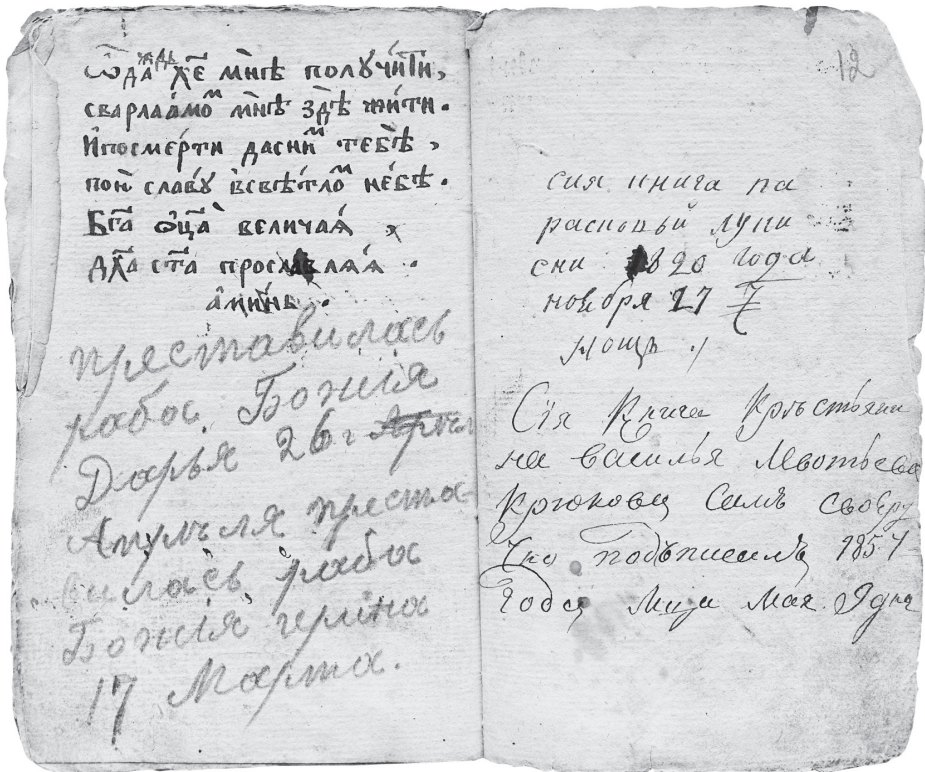 ѿда́ждь хе҃ мнѣ̀ получи́ти,
сварлаамоⷨ мнѣ̀ здѣ̀ жи́ти.
И҆посме́рти дасниⷨ тебѣ̀,
пою̀ сла́ву всвѣ́тлоⷨ не́бѣ.
Бг҃а ѻц҃а̀ велича́ѧ,
дх҃а ст҃а прославлѧ́ѧ.
а҆ми́нь.
преставилась
раба Божія
Дарья 26 г
Апрѣля преста-
вилась раба
Божія
17 Марта.
12
сия книга па
расковьи лупи
сни 1820 года
ноября 27 7
нощъ
Сія Книга Крѣстьяни
на василья
Крюкова Самъ своеру
чно подъписалъ 1857
Года Мца Мая 9 дня